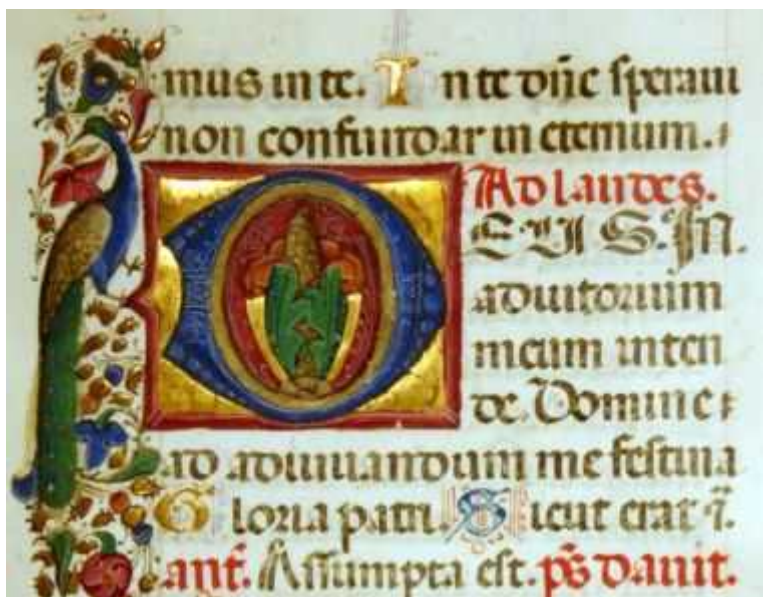 mus in te. In te dn̄e speraui
non confundar in eternum.
Ad laudes.
DEUS. IN.
adiutorium
meum inten
de. Domine
ad adiuuandum me festina
Gloria patri. Sicut erat ī.
ant̄. Assumpta est. ps̄ dauit.